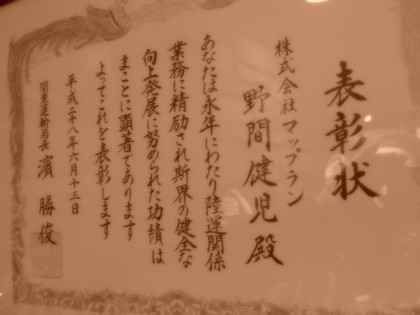 表彰状
株式会社マップラン
野間健児殿
あなたは永年にわたり陸運関係
業務に精励され斯界の健全な
向上発展に努められた功績は
まことに顕著であります
よってこれを表彰します
平成二十八年六月十三日
関東運輸局長 濱 勝俊